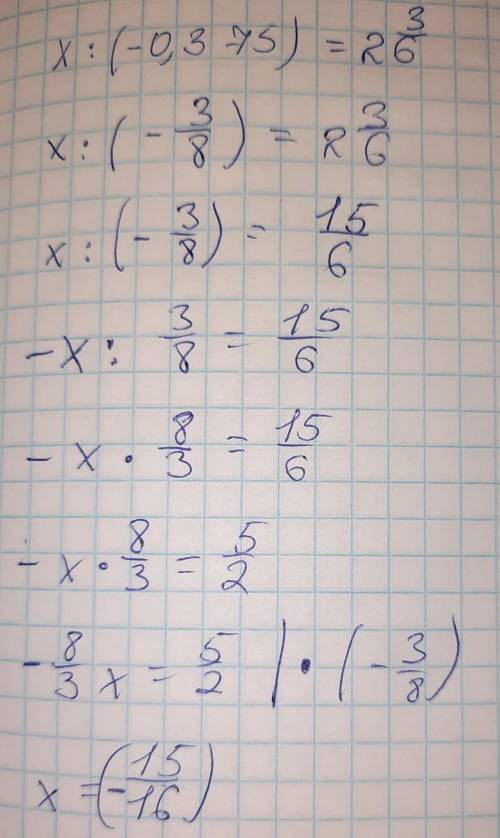 x : (-0,375) = 2 3/6
x : (- 3/8) = 2 3/6
x : (- 3/8) = 15/6
-x : 3/8 = 15/6
- x · 8/3 = 15/6
- x · 8/3 = 5/2
- 8/3 x = 5/2 | · (- 3/8)
x = (- 15/16)